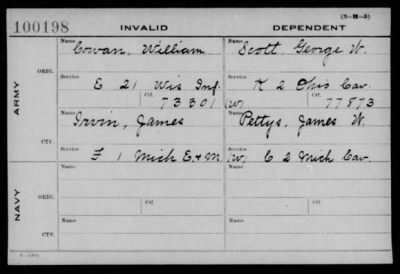 (3—M—3)
100198 INVALID DEPENDENT
Name Name
Cowan, William Scott George W.
ARMY
ORIG.
Service Service
E 21 Wis Inf. K 2 Ohio Cav.
Ctf. Ctf.
73301 (W) 77873
Name Name
CTF.
Irvin, James Pettys, James W.
Service Service
F 1 Mich E & M. (W) C 2 Mich Cav.
NAVY
ORIG.
Name Ctf. Name Ctf.
CTF.
Name Name